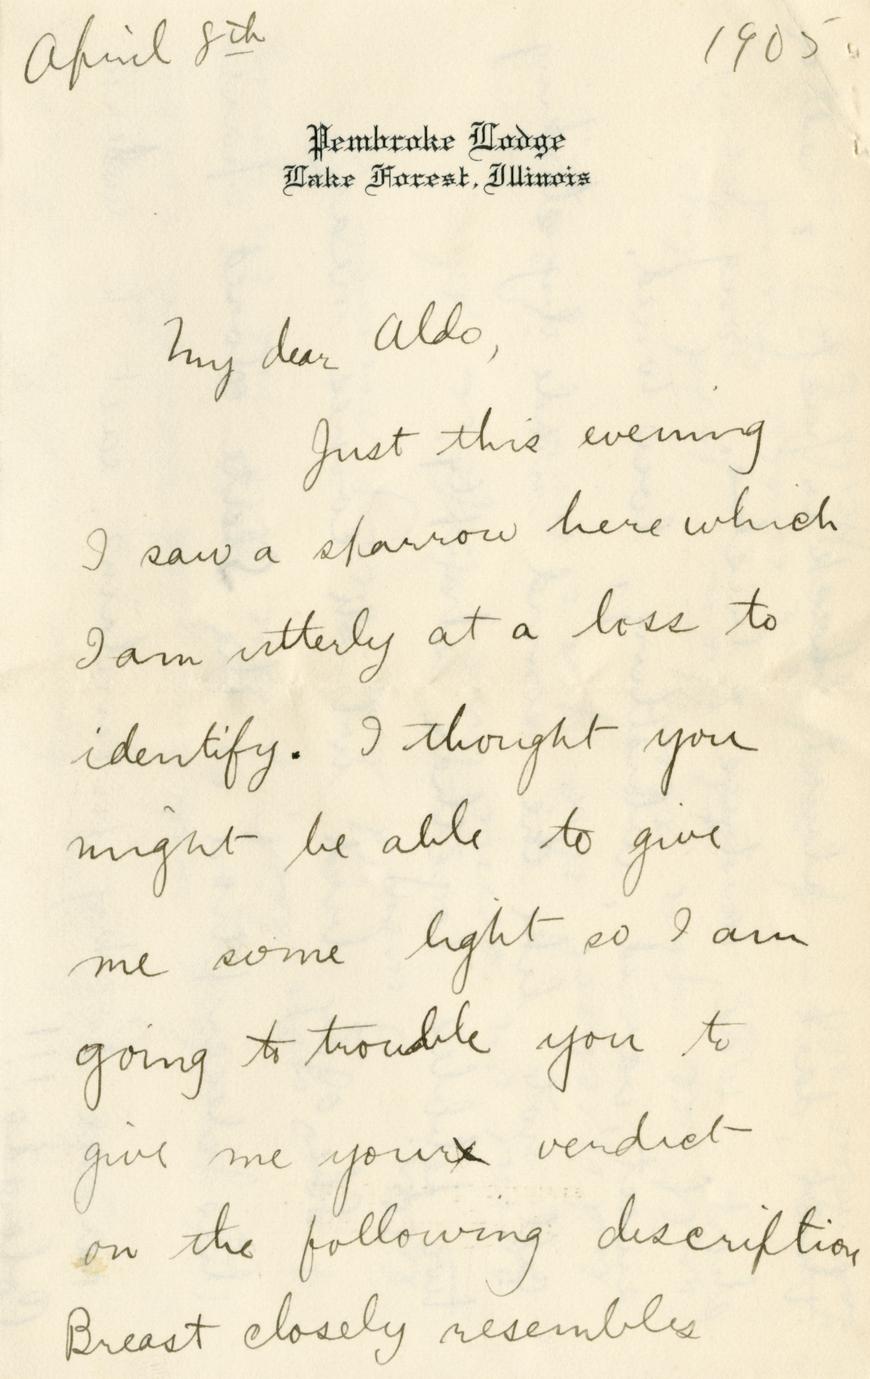 April 8th 1905
Pembroke Lodge
Lake Forest, Illinois
My dear Aldo,
Just this evening
I saw a sparrow here which
I am utterly at a loss to
identify. I thought you
might be able to give
me some light so I am
going to trouble you to
give me your verdict
on the following description
Breast closely resembles